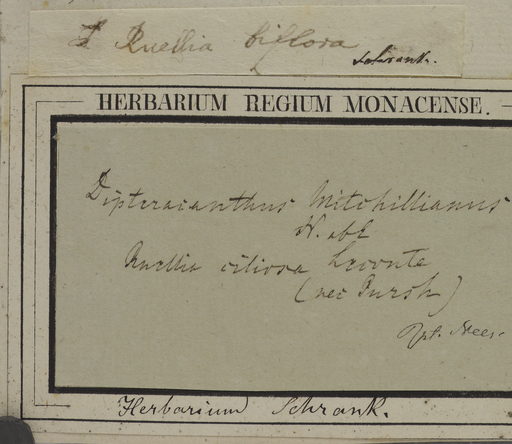 Ruellia biflora
Schrank.
HERBARIUM REGIUM MONACENSE.
Dipteracanthus Mitchillianus
N. ab E
Ruellia ciliosa Leconte
(nec Pursh)
Nees.
Herbarium Schrank.